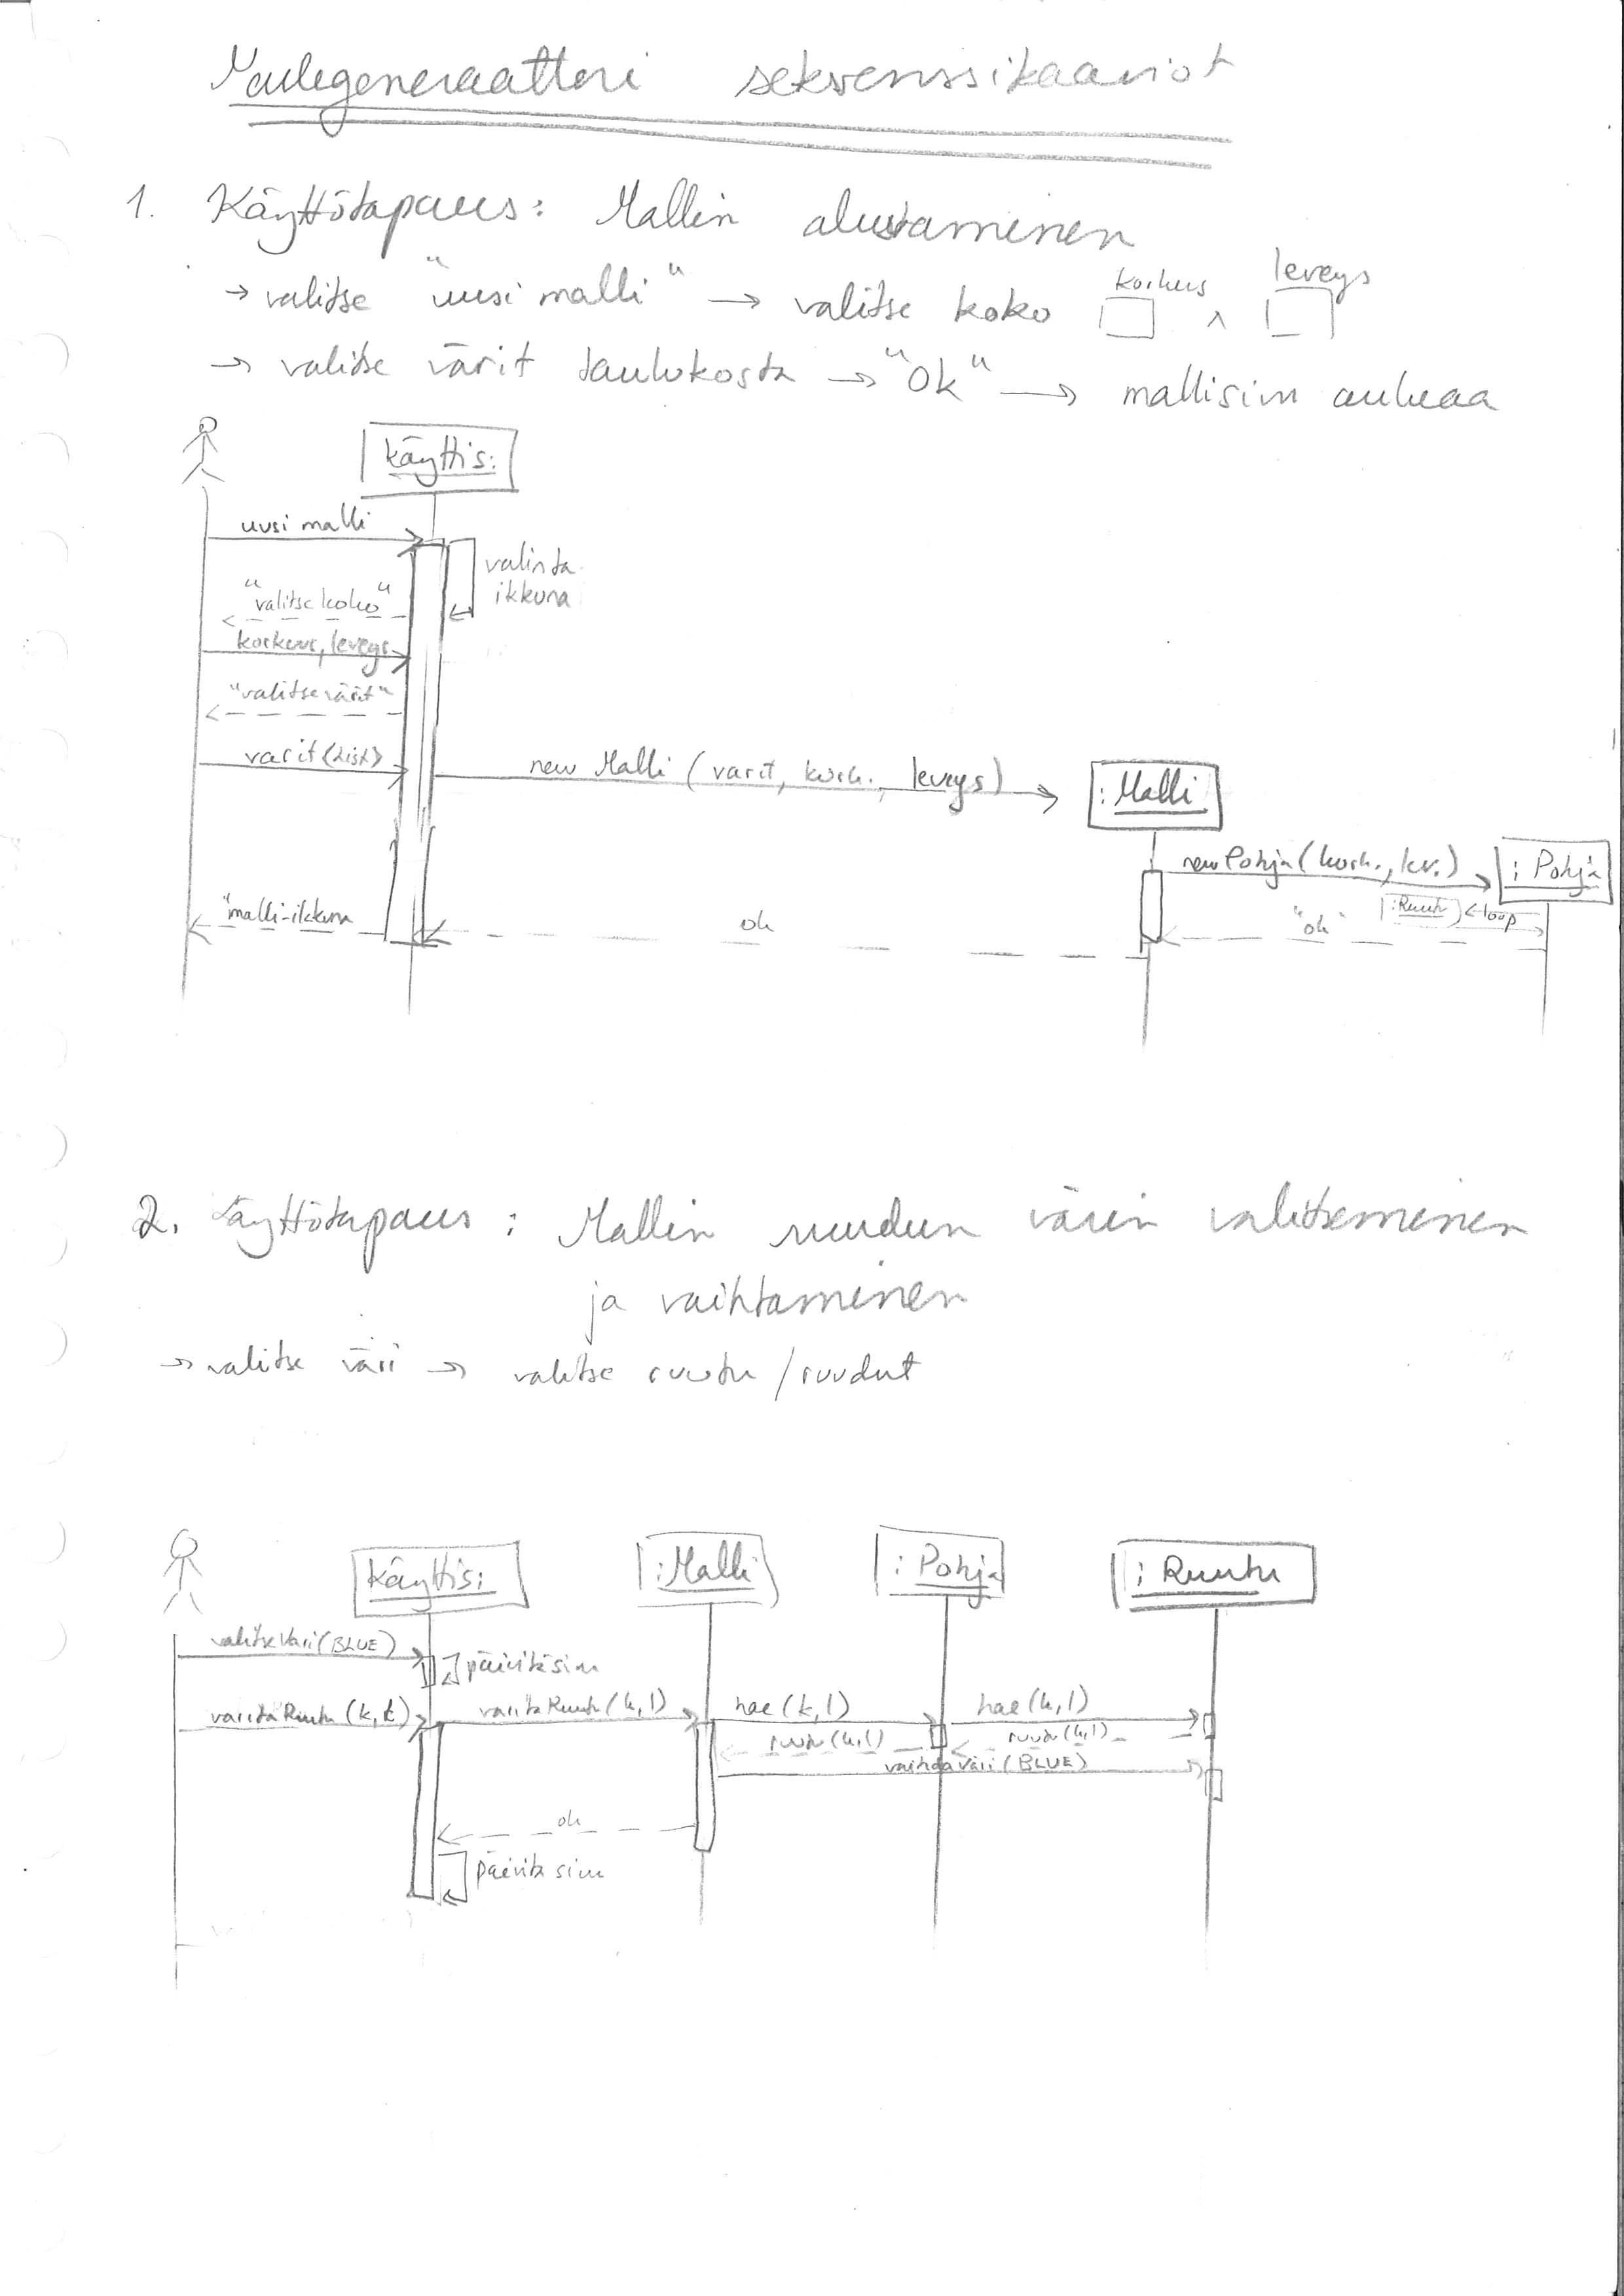 Neulegeneraattori sekvenssikaaviot
1. Käyttötapaus: Mallin alustaminen
→ valitse "uusi malli" → valitse koko korkeus ^ leveys
→ valitse värit taulukosta → "Ok" → mallisivu aukeaa
Käyttis:
uusi malli
valinta
ikkuna
"valitse koko"
korkeus, leveys
"valitse värit"
varit (List)
new Malli (varit, kork., leveys)
:Malli
new Pohja (kork., lev.)
: Pohja
:Ruutu
loop
"malli-ikkuna
ok
"ok"
2. Käyttötapaus : Mallin ruudun värin valitseminen
ja vaihtaminen
→ valitse väri → valitse ruutu / ruudut
Käyttis:
:Malli
: Pohja
: Ruutu
valitseVari (BLUE)
päivitä sivu
varitaRuutu (k, l)
varitaRuutu (k, l)
hae (k, l)
hae (k, l)
ruutu (k, l)
ruutu (k, l)
vaihdaVäri (BLUE)
ok
päivitä sivu